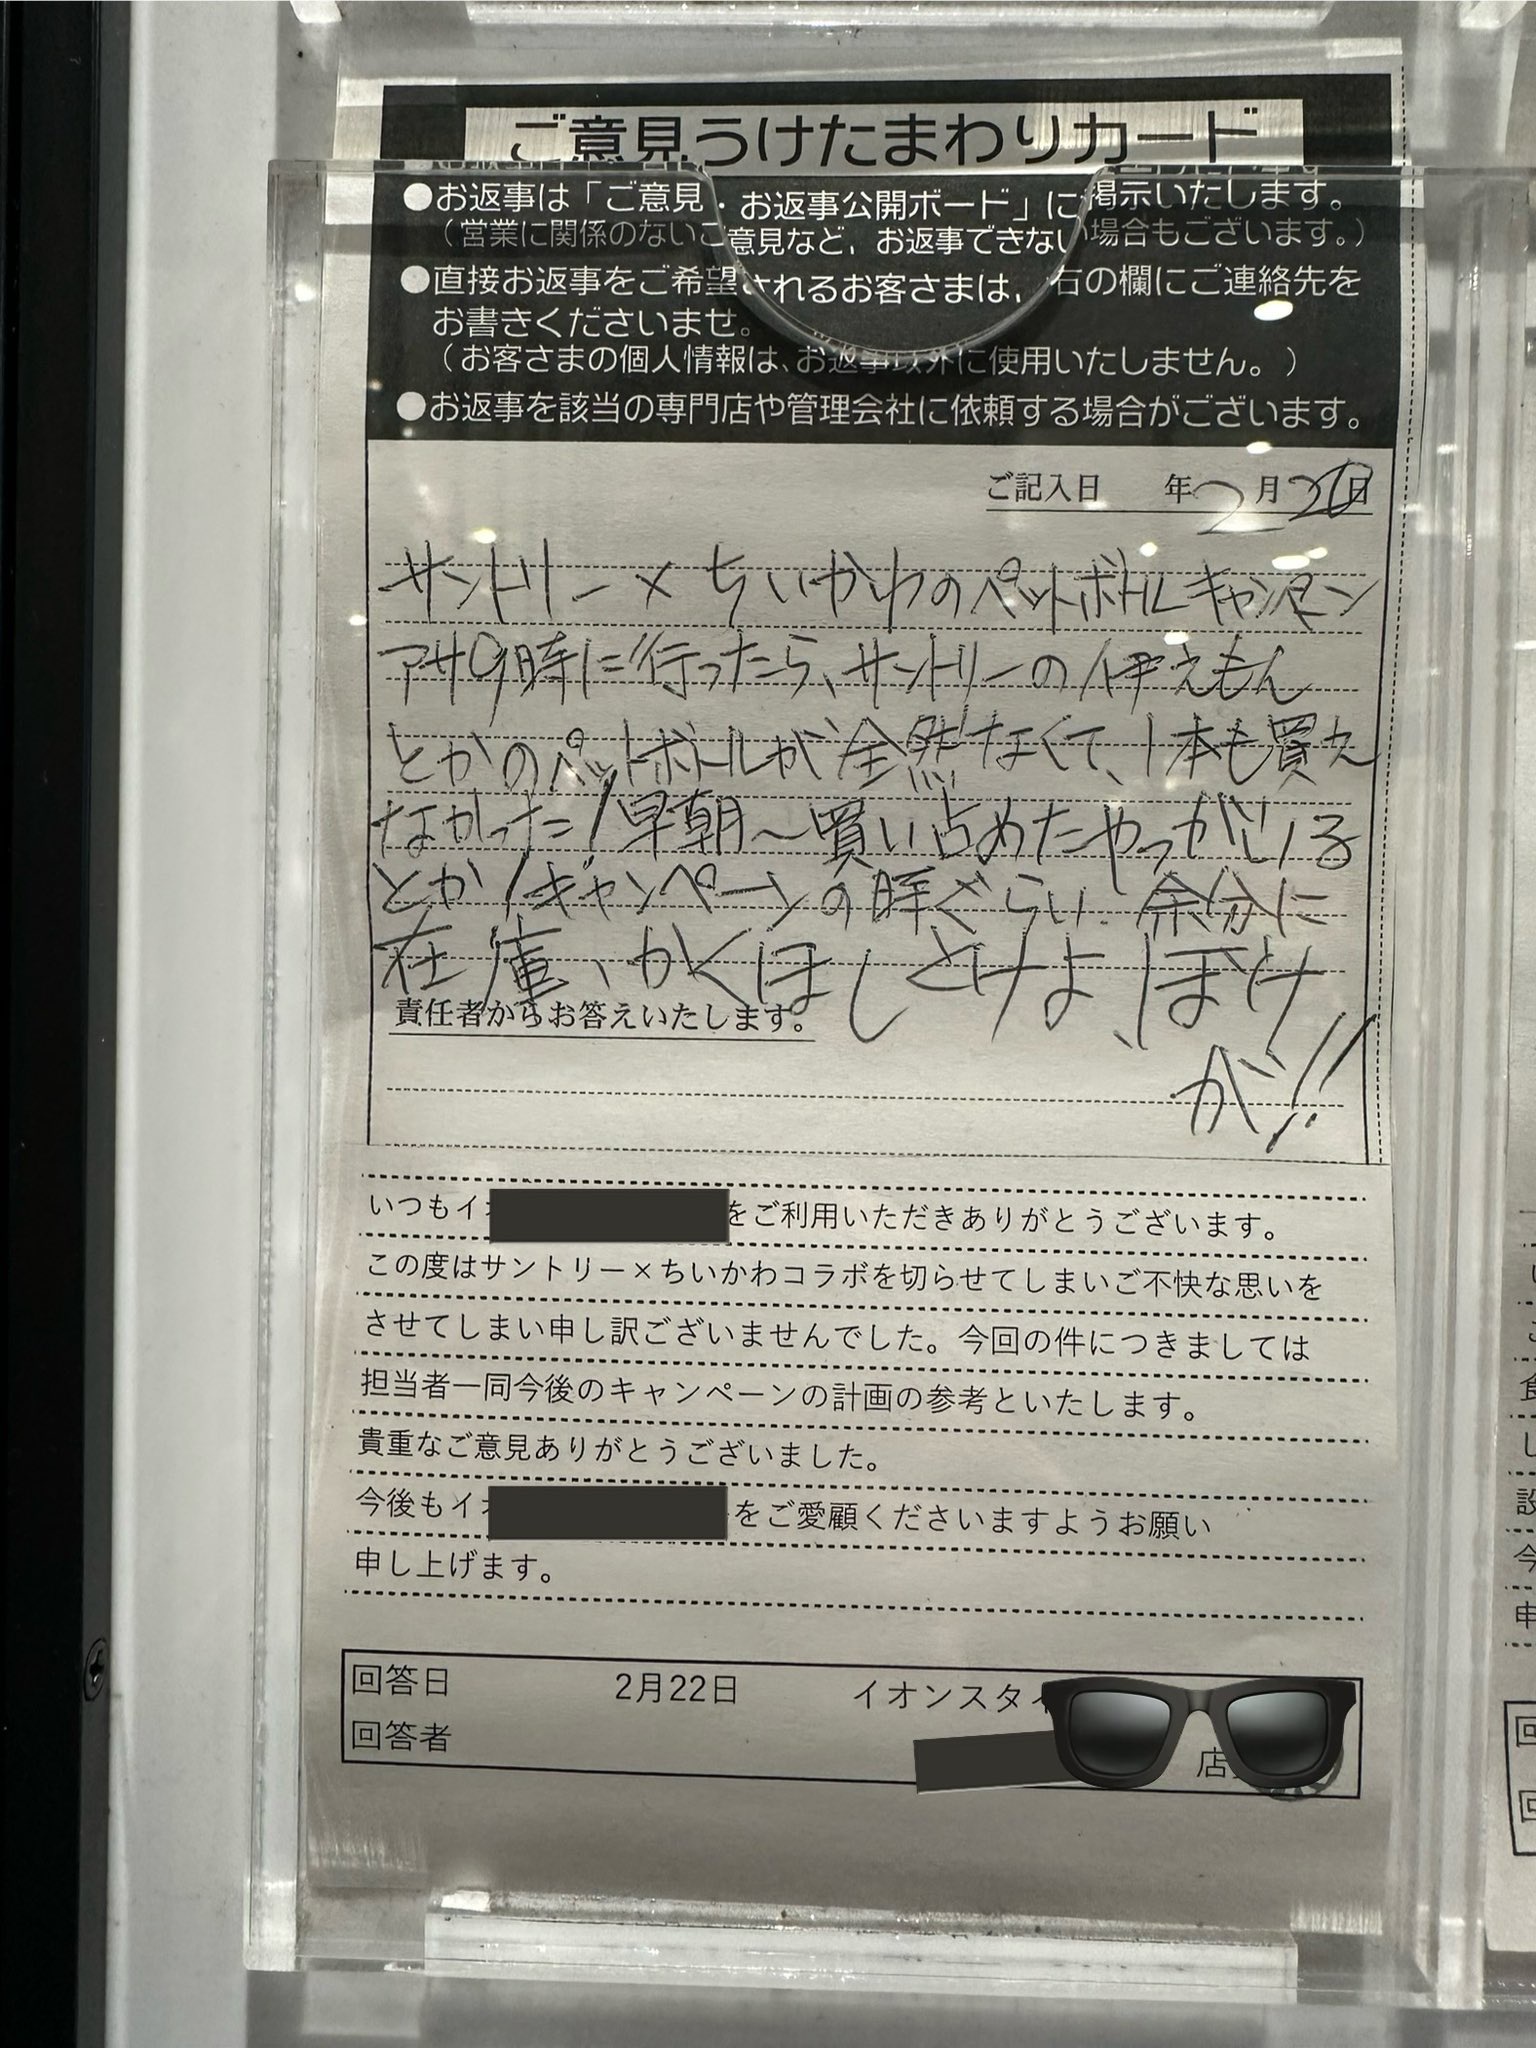 ご意見うけたまわりカード
●お返事は「ご意見・お返事公開ボード」に掲示いたします。
（営業に関係のないご意見など、お返事できない場合もございます。）
●直接お返事をご希望されるお客さまは、右の欄にご連絡先を
お書きくださいませ。
（お客さまの個人情報は、お返事以外に使用いたしません。）
●お返事を該当の専門店や管理会社に依頼する場合がございます。
ご記入日 年2月20日
サントリー×ちいかわのペットボトルキャンペーン
アサ9時に行ったら、サントリーの伊えもん
とかのペットボトルが全然なくて、1本も買え
なかった!早朝〜買い占めたやつがいる
とか!キャンペーンの時ぐらい、余分に
在庫、かくほしとけよ、ぼけ
が!!
責任者からお答えいたします。
いつもイ をご利用いただきありがとうございます。
この度はサントリー×ちいかわコラボを切らせてしまいご不快な思いを
させてしまい申し訳ございませんでした。今回の件につきましては
担当者一同今後のキャンペーンの計画の参考といたします。
貴重なご意見ありがとうございました。
今後もイオ をご愛顧くださいますようお願い
申し上げます。
回答日 2月22日 イオンスタイ
回答者 店